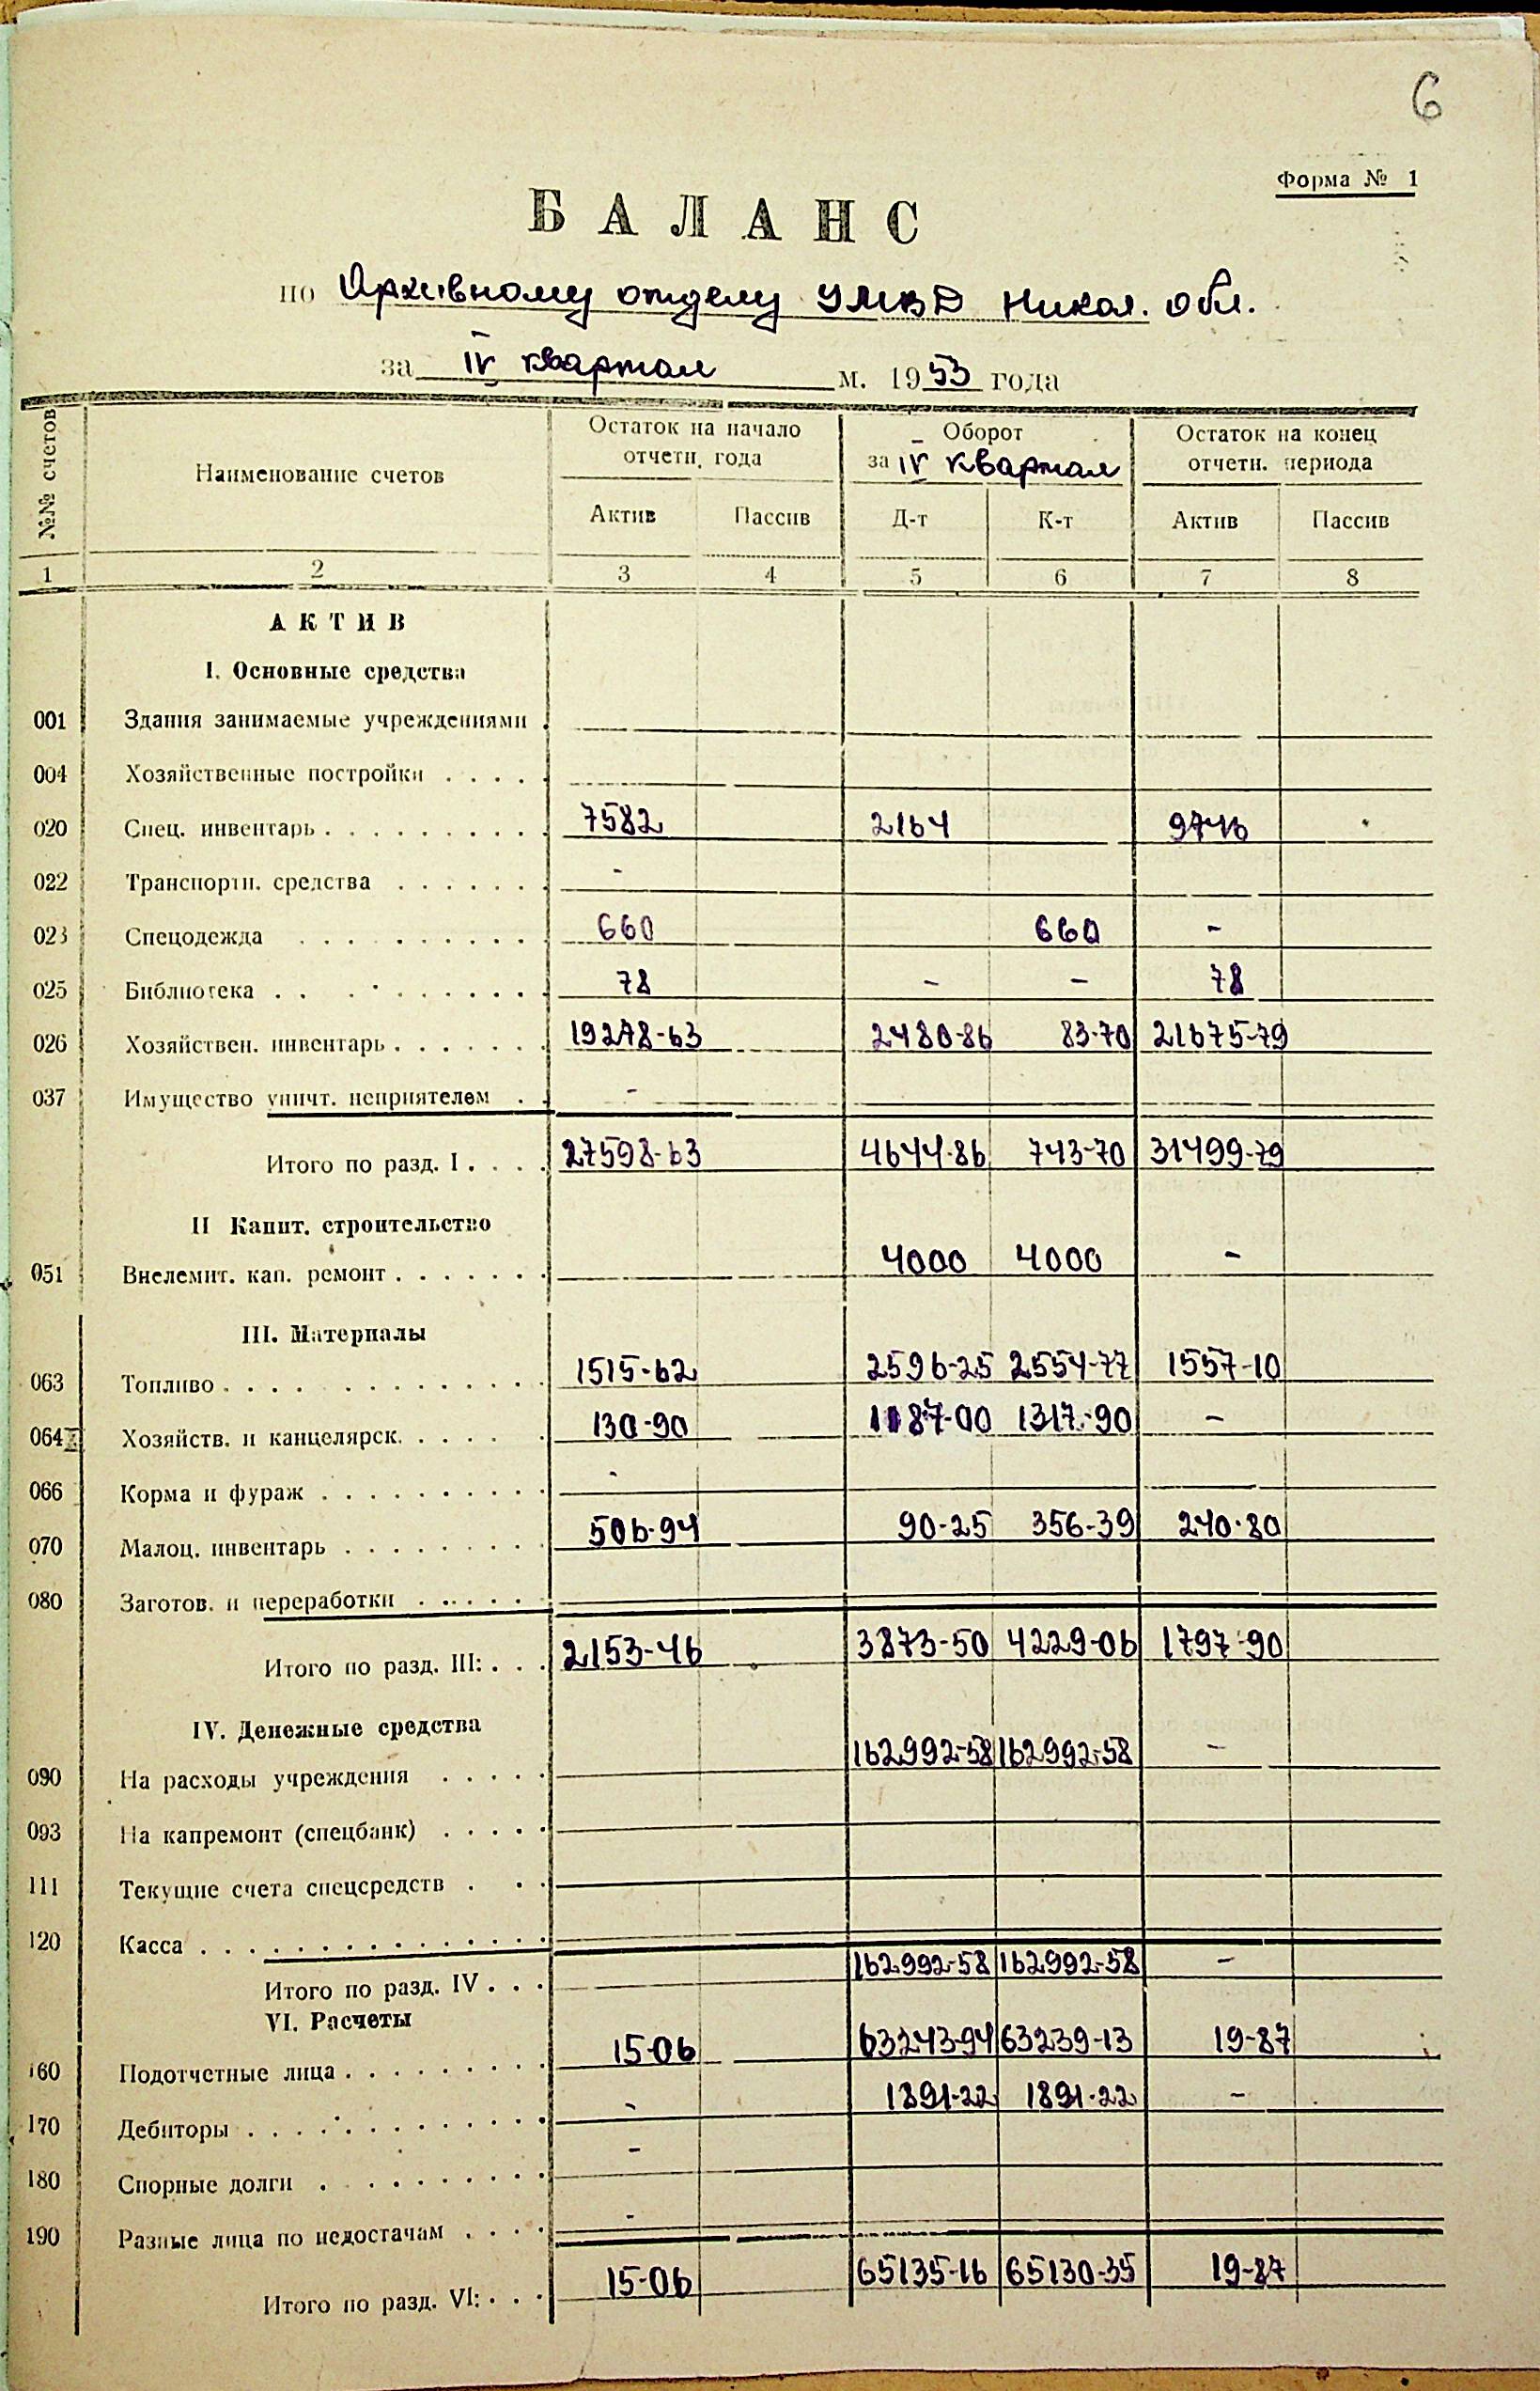 6
Форма № 1
БАЛАНС
по Архивному отделу УМВД Никол. обл.
за IV квартал м. 1953 года
№№ счетов Наименование счетов Остаток на начало отчетн. года Оборот за IV квартал Остаток на конец отчетн. периода
Актив Пассив Д-т К-т Актив Пассив
1 2 3 4 5 6 7 8
АКТИВ
I. Основные средства
001 Здания занимаемые учреждениями .
004 Хозяйственные постройки . . . .
020 Спец. инвентарь . . . . . . . . . 7582 2164 9746
022 Транспортн. средства . . . . . . . -
023 Спецодежда . . . . . . . . . 660 660 -
025 Библиотека . . . . . . . . . . 78 - - 78
026 Хозяйствен. инвентарь . . . . . . . 19278-63 2480-86 83-70 21675-79
037 Имущество уничт. неприятелем . . -
Итого по разд. I . . . . 27598-63 4644-86 743-70 31499-79
II Капит. строительство
051 Внелемит. кап. ремонт . . . . . . . 4000 4000 -
III. Материалы
063 Топливо . . . . . . . . . . . . . 1515-62 2596-25 2554-77 1557-10
064 Хозяйств. и канцелярск. . . . . . 130-90 1187-00 1317-90 -
066 Корма и фураж . . . . . . . . . . -
070 Малоц. инвентарь . . . . . . . . . 506-94 90-25 356-39 240-80
080 Заготов. и переработки . . . . . .
Итого по разд. III: . . . 2153-46 3873-50 4229-06 1797-90
IV. Денежные средства
090 На расходы учреждения . . . . . 162992-58 162992-58 -
093 На капремонт (спецбанк) . . . . .
111 Текущие счета спецсредств . . .
120 Касса . . . . . . . . . . . . . .
Итого по разд. IV . . . 162992-58 162992-58 -
VI. Расчеты
160 Подотчетные лица . . . . . . . . 15-06 63243-94 63239-13 19-87
170 Дебиторы . . . . . . . . . . . . - 1891-22 1891-22 -
180 Спорные долги . . . . . . . . . -
190 Разные лица по недостачам . . . . -
Итого по разд. VI: . . . 15-06 65135-16 65130-35 19-87